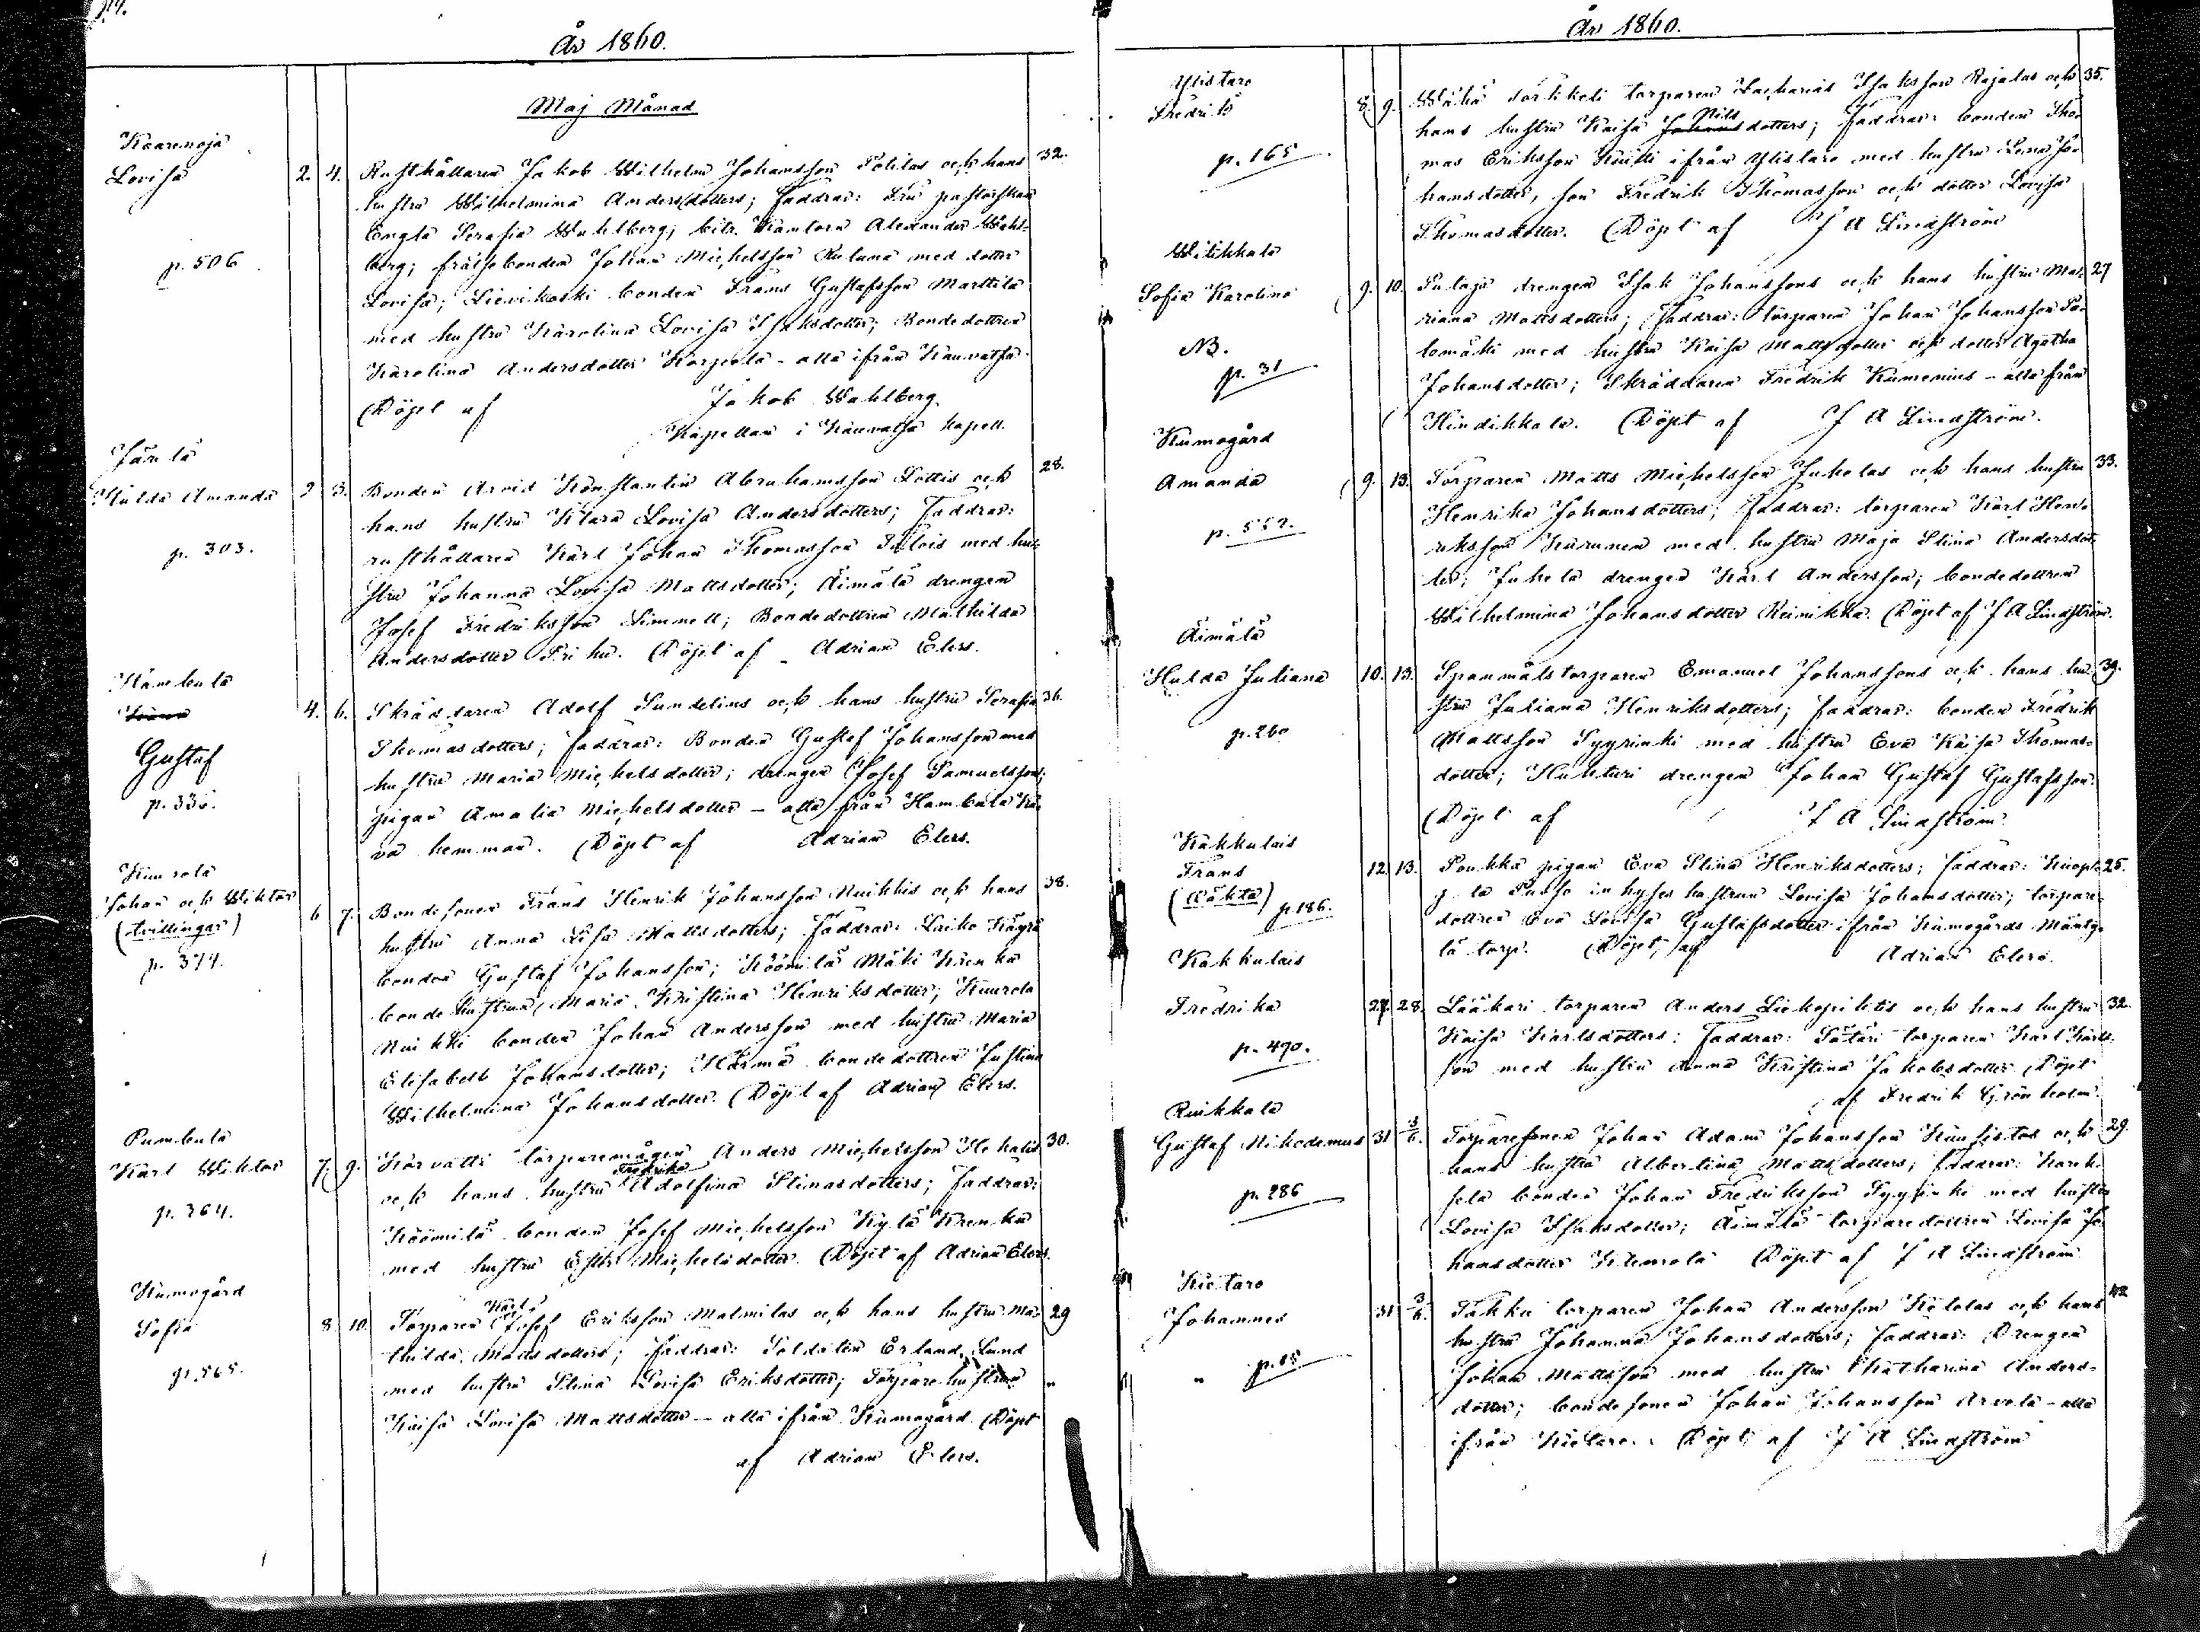 År 1860.
Maj Månad
Kaarenoja
Lovisa 2. 4. Rusthållaren Jakob Wilhelm Johansson Tolilas och hans 32.
hustru Wilhelmina Andersdotters; faddrar: Fru pastorskan
Engla Serafia Wahlberg; bitr. Kantorn Alexander Wahl-
p. 506 berg; frälsebonden Johan Michelsson Rulana med dotter
Lovisa; Lievikoski bonden Frans Gustafsson Marttila
med hustru Karolina Lovisa Isaksdotter; Bondedottren
Karolina Andersdotter Korpela - alla ifrån Kauvatsa.
(Döpt af Jakob Wahlberg.
Kapellan i Kauvatsa kapell.
Järilä
Hulda Amanda 2 3. Bonden Arvid Konstantin Abrahamsson Lottis och 28.
hans hustru Klara Lovisa Andersdotters; Faddrar:
p. 303. rusthållaren Karl Johan Thomasson Talois med hu-
stru Johanna Lovisa Mattsdotter; Äimälä drengen
Josef Fredriksson Simnell; Bondedottren Mathilda
Andersdotter Prihu. (Döpt af Adrian Elers.
Hambula
4. 6. Skräddaren Adolf Sundelius och hans hustru Serafia 36.
Gustaf Thomasdotters; faddrar: Bonden Gustaf Johansson med
hustru Maria Michelsdotter; drengen Josef Samuelsson;
p. 335. pigan Amalia Michelsdotter - alla från Hambula Ka-
va hemman. (Döpt af Adrian Elers.
Kuurola
Johan och Wiktor 6 7. Bondesonen Frans Henrik Johansson Nuikkis och hans 38.
(tvillingar) hustru Anna Lisa Mattsdotters; Faddrar: Laiko Kägrä
p. 374. bonden Gustaf Johansson; Köömilä Mäki Krenka
bondehustrun Maria Kristina Henriksdotter; Kuurola
Nuikki bonden Johan Andersson med hustru Maria
Elisabeth Johansdotter; Härmä bondedottren Justina
Wilhelmina Johansdotter. (Döpt af Adrian Elers.
Pumbula
Karl Wiktor 7. 9. Karvatti torparemågen Anders Michelsson Hekalis 30.
Fredrika
och hans hustru Adolfina Stinasdotters; faddrar:
p. 364. Köömilä bonden Josef Michelsson Kylä Krenka
med hustru Esther Michelsdotter. (Döpt af Adrian Elers.
Kumogård
Karl
Sofia 8 10. Torparen Josef Eriksson Malmilas och hans hustru Ma- 29
thilda Mattsdotters; faddrar: Soldaten Erland Lund
p. 565. med hustru Stina Lovisa Eriksdotter; Torparehustrun
Kaisa Lovisa Mattsdotter - alla ifrån Kumogård. (Döpt
af Adrian Elers.
År 1860.
Ylistaro
Fredrik 8. 9. Wähä Sorkkeli torparen Zacharias Isaksson Rajalas och 35.
Nils
hans hustru Kaisa Johansdotters; faddrar: bonden Tho-
p. 165 mas Eriksson Knuti ifrån Ylistaro med hustru Lena Jo-
hansdotter, son Fredrik Thomasson och dotter Lovisa
Thomasdotter. (Döpt af J A Lindström
Wilikkala
Sofia Karolina 9. 10. Pulaja drengen Isak Johanssons och hans hustru Ma- 27
riana Mattsdotters; Faddrar: torparen Johan Johansson Pa-
NB. lomäki med hustru Kaisa Mattsdotter och dotter Agatha
p. 31 Johansdotter; Skräddaren Fredrik Kumenius - alla från
Hindikkala. (Döpt af J A Lindström.
Kumogård
Amanda 9. 13. Torparen Matts Michelsson Juholas och hans hustru 33.
Henrika Johansdotters; Faddrar: torparen Karl Hen-
p. 552. riksson Kurunen med hustru Maja Stina Andersdot-
ter; Juhola drengen Karl Andersson; bondedottren
Wilhelmina Johansdotter Reinikka. (Döpt af J A Lindström.
Äimälä
Hulda Juliana 10. 13. Spanmålstorparen Emanuel Johanssons och hans hu- 39.
stru Juliana Henriksdotters; faddrar: bonden Fredrik
p. 260 Mattsson Pyysinki med hustru Eva Kaisa Thomas-
dotter; Huhturi drengen Johan Gustaf Gustafsson.
(Döpt af J A Lindström.
Kakkulais
Frans 12. 13. Poukka pigan Eva Stina Henriksdotters; faddrar: 25.
(Oäkta) p. 186. inhyses hustrun Lovisa Johansdotter; torpare-
dottren Eva Lovisa Gustafsdotter ifrån Kumogårds Mänty-
lä torp. (Döpt af Adrian Elers.
Kakkulais
Fredrika 27. 28. Lääkari torparen Anders Liekopilttis och hans hustru 32.
Kaisa Karlsdotters; Faddrar: Satari torparen Karl Karls-
p. 490. son med hustru Anna Kristina Jakobsdotter (Döpt
af Fredrik Grönholm.
Raikkala
Gustaf Nikodemus 31 3/6. Torparesonen Johan Adam Johansson Kuusistos och 29
hans hustru Albertina Mattsdotters; faddrar: Kark-
p. 286 sela bonden Johan Fredriksson Pyysinki med hustru
Lovisa Isaksdotter; Äimälä torparedottren Lovisa Jo-
hansdotter Kilemola (Döpt af J A Lindström
Kietaro
Johannes 31 3/6. Takku torparen Johan Andersson Kilolas och hans 42
hustru Johanna Johansdotters; faddrar: Drengen
p. 85 Johan Mattsson med hustru Katharina Anders-
dotter; bondesonen Johan Johansson Arvela - alla
ifrån Kietaro. (Döpt af J A Lindström